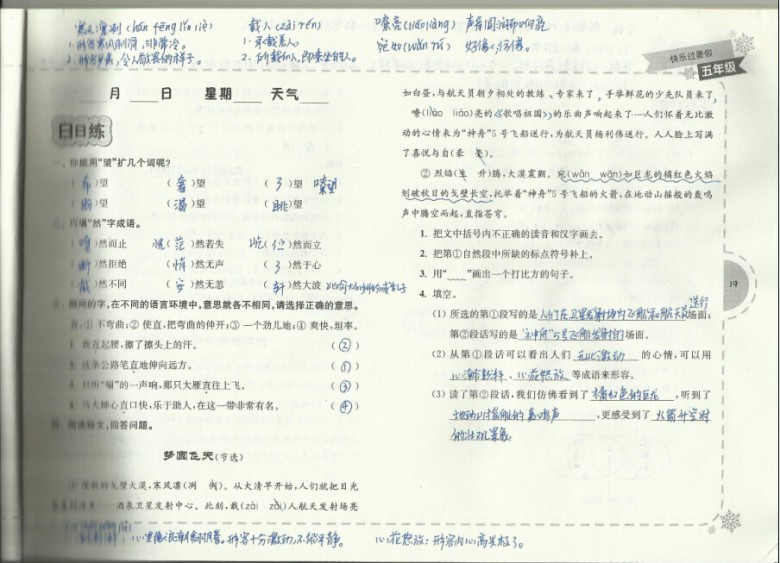 凛冽(chān fēng lǐn liè)
载人(zài rén)
嘹亮(liáo liàng) 声音圆润而响亮
1.承载着人。
宛如(wǎn rú) 好像、仿佛。
快乐过暑假
五年级
月 日 星期 天气
日日练
一、你能用“望”扩几个词呢?
(希)望 (奢)望 (了)望 瞭望
(盼)望 (渴)望 (眺)望
然而止 恍(茫)然若失 屹(伫)然而立
(断)然拒绝 (悄)然无声 (了)然于心
(截)然不同 (安)然无恙 (轩)然大波
三、相同的字,在不同的语言环境中,意思就各不相同,请选择正确的意思。
直:① 不弯曲;② 使直,把弯曲的伸开;③ 一个劲儿地;④ 爽快,坦率。
1. 我直起腰,擦了擦头上的汗。 (②)
2. 这条公路笔直地伸向远方。 (①)
3. 只听“嗡”的一声响,那只大雁直往上飞。 (③)
4. 马大婶心直口快,乐于助人,在这一带非常有名。 (④)
四、阅读短文,回答问题。
梦圆飞天(节选)
① 深秋的戈壁大漠,寒风凛(冽 例)。从大清早开始,人们就把目光
酒泉卫星发射中心。此刻,载(zài zǎi)人航天发射场亮
如白昼,与航天员朝夕相处的教练、专家来了,手举鲜花的少先队员来了
嘹(liáo liào)亮的《歌唱祖国》的乐曲声响起来了……人们怀着无比激
动的心情来为“神舟”5号飞船送行,为航天员杨利伟送行。人人脸上写满
了喜悦与自(豪 毫)。
② 烈焰(生 升)腾,大漠震颤。宛(wǎn wān)如巨龙的橘红色火焰
划破秋日的戈壁长空,托举着“神舟”5号飞船的火箭,在地动山摇般的轰鸣
声中腾空而起,直指苍穹。
1. 把文中括号内不正确的读音和汉字画去。
2. 把第①自然段中所缺的标点符号补上。
3. 用“﹏﹏”画出一个打比方的句子。
4. 填空。
送行
(1) 所选的第①段写的是人们在卫星发射场为飞船和航天员场面;
第②段话写的是“神舟”5号飞船发射的场面。
(2) 从第①段话可以看出人们 无比激动 的心情,可以用
心潮澎湃、心花怒放 等成语来形容。
(3) 读了第②段话,我们仿佛看到了 橘红色的巨龙 ,听到了
地动山摇般的轰鸣声 ,更感受到了 火箭升空时
的壮观景象
19
心里像浪潮翻滚。形容十分激动,不能平静。
心花怒放:形容内心高兴极了。